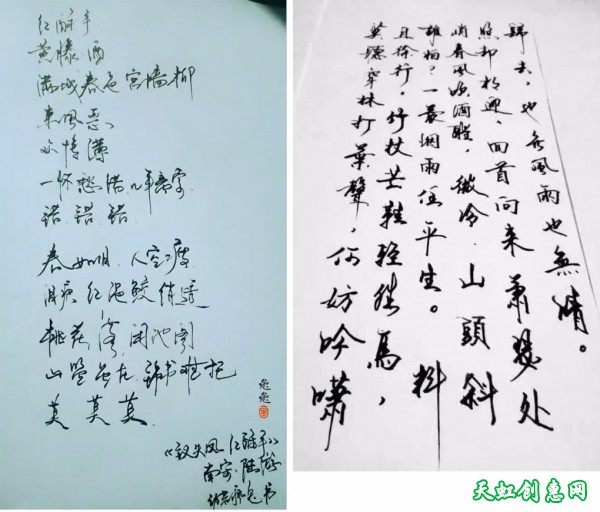 红酥手
黄滕酒
满城春色宫墙柳
东风恶
欢情薄
一怀愁绪、几年离索
错、错、错
春如旧、人空瘦
泪痕红浥鲛绡透
桃花落、闲池阁
山盟虽在、锦书难托
莫 莫 莫
《钗头凤 红酥手》
南宋·陆游
莫聽穿林打葉聲,何妨吟嘯
且徐行,竹杖芒鞋輕勝馬,
誰怕?一蓑烟雨任平生。料
峭春風吹酒醒,微冷,山頭斜
照却相迎,回首向来蕭瑟处
歸去,也無風雨也無情。
天虹创意网